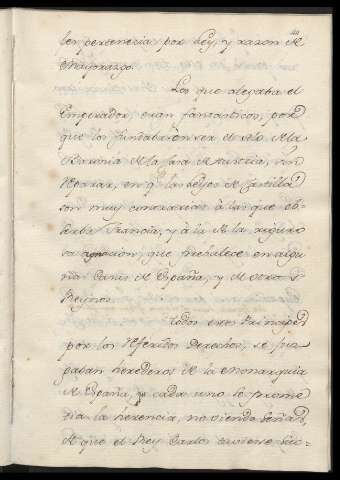 les pertenecia por Ley, y razon de
Mayorazgo.
Los que alegaba el
Emperador, eran fantasticos, por
que los fundaba en ser el solo de la
Baronia de la Casa de Austria, sin
reparar, en q.e las Leyes de Castilla
son muy contrarias à las que ob-
serba Francia, y à la de la riguro
sa agnacion, que prebalece en algu
nas Partes de España, y de otros
Reynos.
Todos estos Principes
por los referidos Derechos, se juz
gaban herederos de la Monarquia
de España, y cada uno se prome
tia la herencia, no viendo señas,
de que el Rey Carlos tuviese suc-